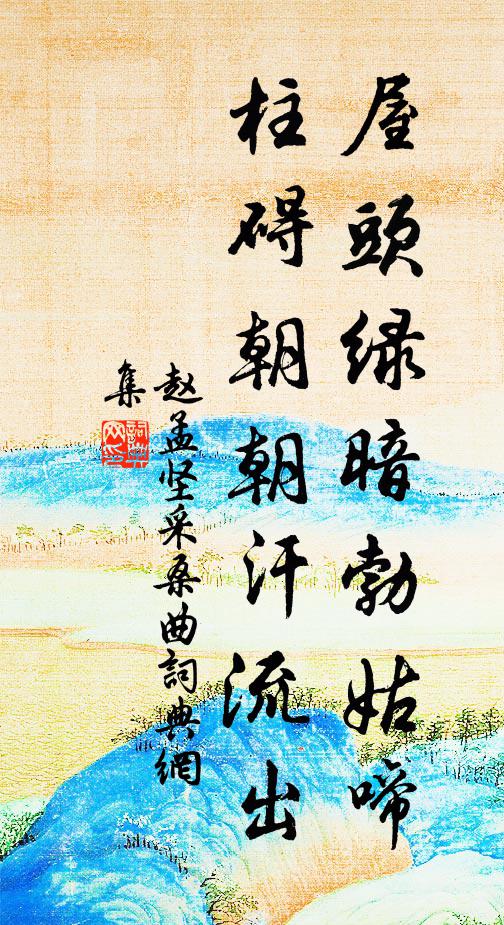 屋頭绿暗勃姑啼
柱碍朝朝汗流出
赵孟坚采桑曲詞典網
集